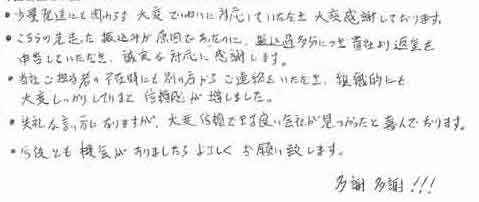 ・少量発送にも関わらず 大変ていねいに対応していただき 大変感謝しております。
・こちらの見落した 振込料が原因であったのに、振込過多分につき貴社より返金を
申出していただき、誠実な対応に感謝します。
・当社ご担当者の不在時にも別の方から ご連絡をいただき、組織的にも
大変しっかりしていると 信頼感が増しました。
・失礼な言い方になりますが、大変信頼できる良い会社が見つかったと喜んでおります。
・今後とも 機会がありましたら よろしく お願い致します。
多謝 多謝!!!